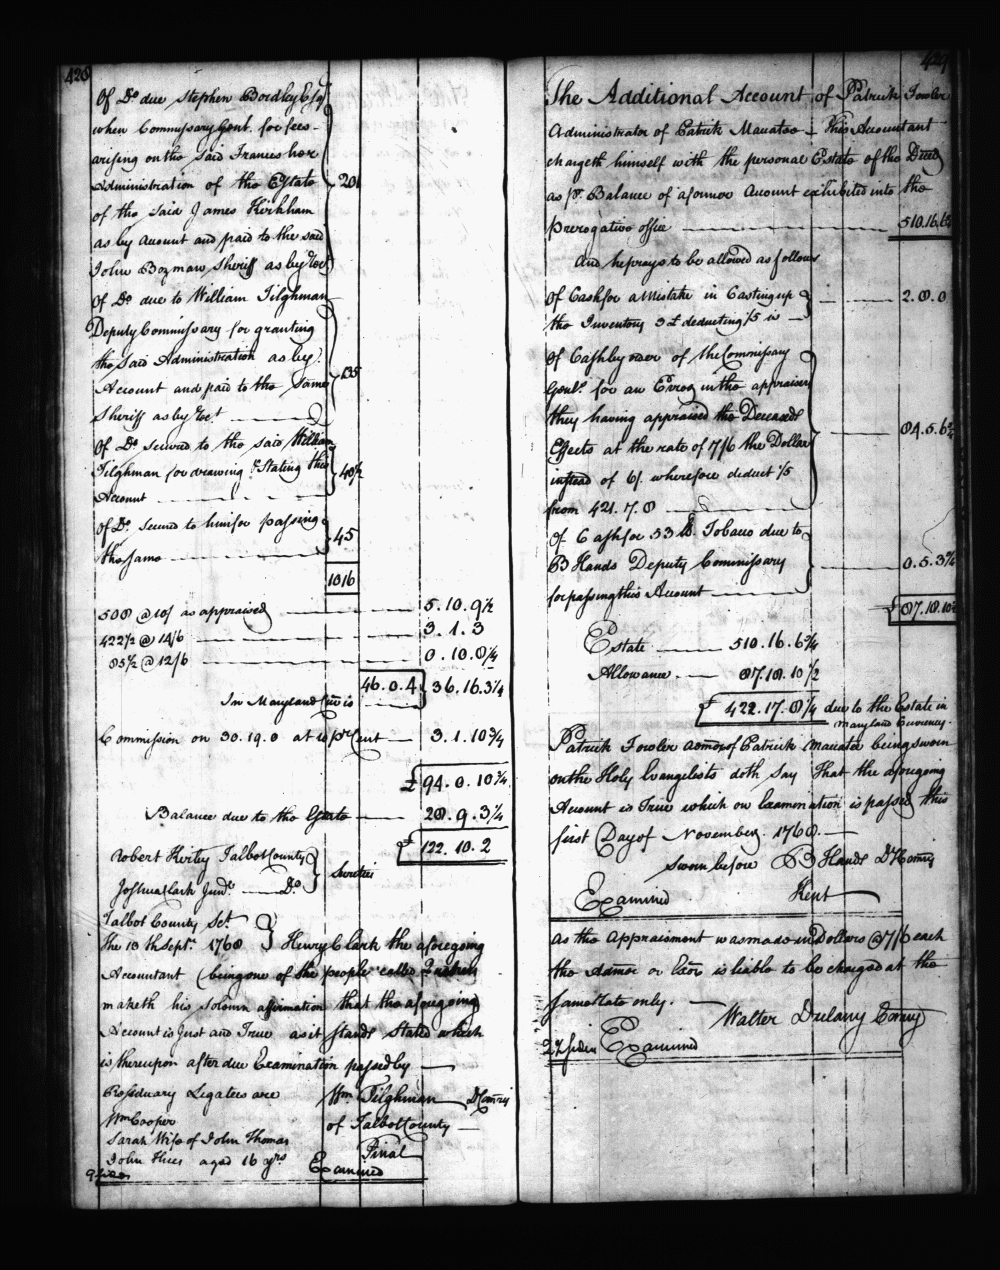 428
Of Do due Stephen Bordley Esqr
when Commissary Genl. for fees
arising on the said Frances her
Administration of the Estate
of the said James Kirkham
as by Account and paid to the said
John Bozman Sheriff as by
201
Of Do due to William Tilghman
Deputy Commissary for granting
the said Administration as by
Account and paid to the same
Sheriff as by
135
Of Do secured to the said William
Tilghman for drawing & Stating this
Account
40½
Of Do. secured to him for passing
the same
45
1016
508 @ 10/ as appraised 5.10.9½
422½ @ 14/6 3.1.3
85½ @ 12/6 0.10.8¼
In Maryland Cur is 46.0.4 36.16.3¼
Commission on 30.19.0 at 10 pr Cent 3.1.10¾
£ 94.0.10¾
Balance due to the Estate 28.9.3¼
£ 122.10.2
Robert Kirby Talbot County
Joshua Clark Junr. Do
Sureties
Talbot County Sct.
the 10th Sept. 1760 Henry Clark the aforegoing
Accountant (being one of the people called Quakers
maketh his solemn affirmation that the aforegoing
Account is Just and True as it stands Stated which
is thereupon after due Examination passed by
Residuary Legatees are Wm. Tilghman D Comry
Wm Cooper of Talbot County
Sarah Wife of John Thomas
John aged 16 yrs Final
Examined
429
The Additional Account of Patrick Fowler
Administrator of Patrick Macatee This Accountant
chargeth himself with the personal Estate of the Deced
as pr. Balance of a former Account exhibited into the
Prerogative office 510.16.6¾
And he prays to be allowed as follows
Of Cash for a Mistake in Casting up
the Inventory 3£ deducting /5 is 2.8.0
Of Cash by order of the Commissary
Genl. for an Error in the appraisers
they having appraised the Deceaseds
Effects at the rate of 7/6 the Dollar
instead of 6/. wherefore deduct /5
from 421.7.8 84.5.6¾
Of Cash for 53 lb. Tobacco due to
B Hands Deputy Commissary
for passing this Account 0.5.3¾
£ 87.18.10½
Estate 510.16.6¾
Allowance 87.18.10½
£ 422.17.8¼ due to the Estate in
Maryland Currency.
Patrick Fowler admor of Patrick Macatee being sworn
on the Holy Evangelists doth Say that the aforegoing
Account is True which on Examination is passed this
first Day of November 1760.
Sworn before B Hands D Comry
Examined Kent
As the Appraisment was made in Dollars @ 7/6 each
the Admor or Exor is liable to be charged at the
same rate only.
Walter Dulany Comry
Examined